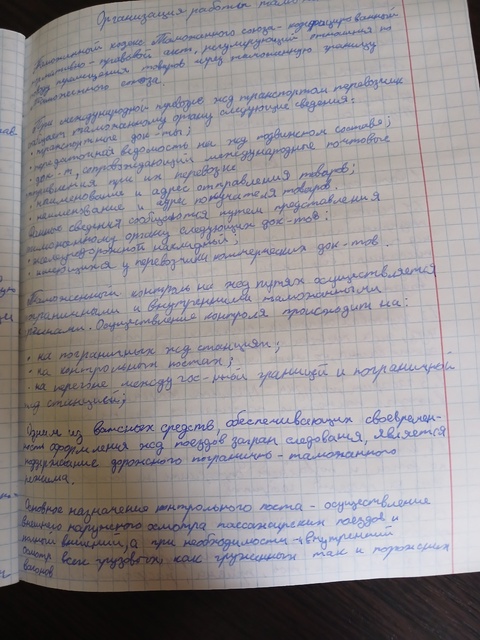 Организация работы
Таможенный кодекс Таможенного союза - кодифицированный
нормативно-правовой акт, регулирующий отношения по
перемещения товаров через таможенную границу
Таможенного союза.
При международной провозе жд транспортом перевозчик
таможенному органу следующие сведения:
• транспортные док-ты;
• передаточная ведомость на жд подвижном составе;
• док-т, сопровождающий международные почтовые
при их перевозке
• наименование и адрес отправления товаров;
• наименование и адрес получателя товаров.
Данные сведения сообщаются путем представления
таможенному органу следующих док-тов:
• железнодорожной накладных;
• имеющихся у перевозчика коммерческих док-тов.
Таможенный контроль на жд путях осуществляется
пограничными и внутренними таможенными
органами. Осуществление контроля происходит на:
• на пограничных жд станциях;
• на контрольных постах;
• на перегоне между гос-нной границей и пограничной
жд станцией;
Одним из важных средств, обеспечивающих своевремен-
ность оформления жд поездов загран. следования, является
поддержание дорожного погранично-таможенного
режима.
Основное назначение контрольного поста - осуществление
внешнего наружного осмотра пассажирских поездов и
а при необходимости внутренний
осмотр всех грузовых как груженных так и порожних
вагонов